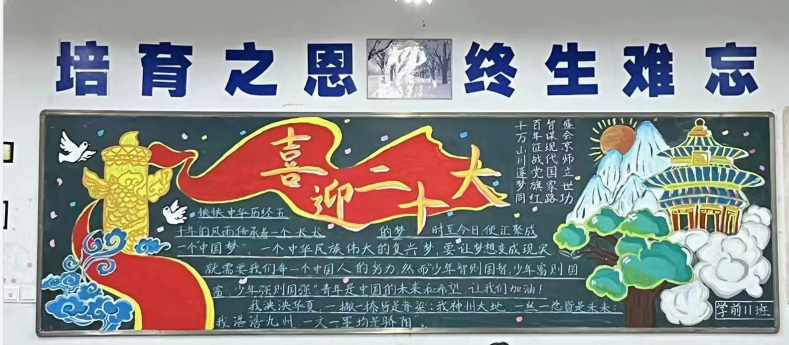 培育之恩 终生难忘
喜迎二十大
盛会京师立世功
智谋现代国家路
百年征战党旗红
千万山川逐梦同
泱泱中华历经五
千年的风雨传承每一个 的梦 时至今日便汇聚成
一个中国梦”，一个中华民族伟大的复兴梦，要让梦想变成现实
就需要我们每一个中国人的努力，然而少年智则国智，少年富则国
富，少年强则国强”青年是中国的未来和希望，让我们加油！
我泱泱华夏，一撇一捺皆是脊梁；我神州大地，一丝一 皆是未来；
我浩浩九州，一文一墨均 骄阳。
学前11班